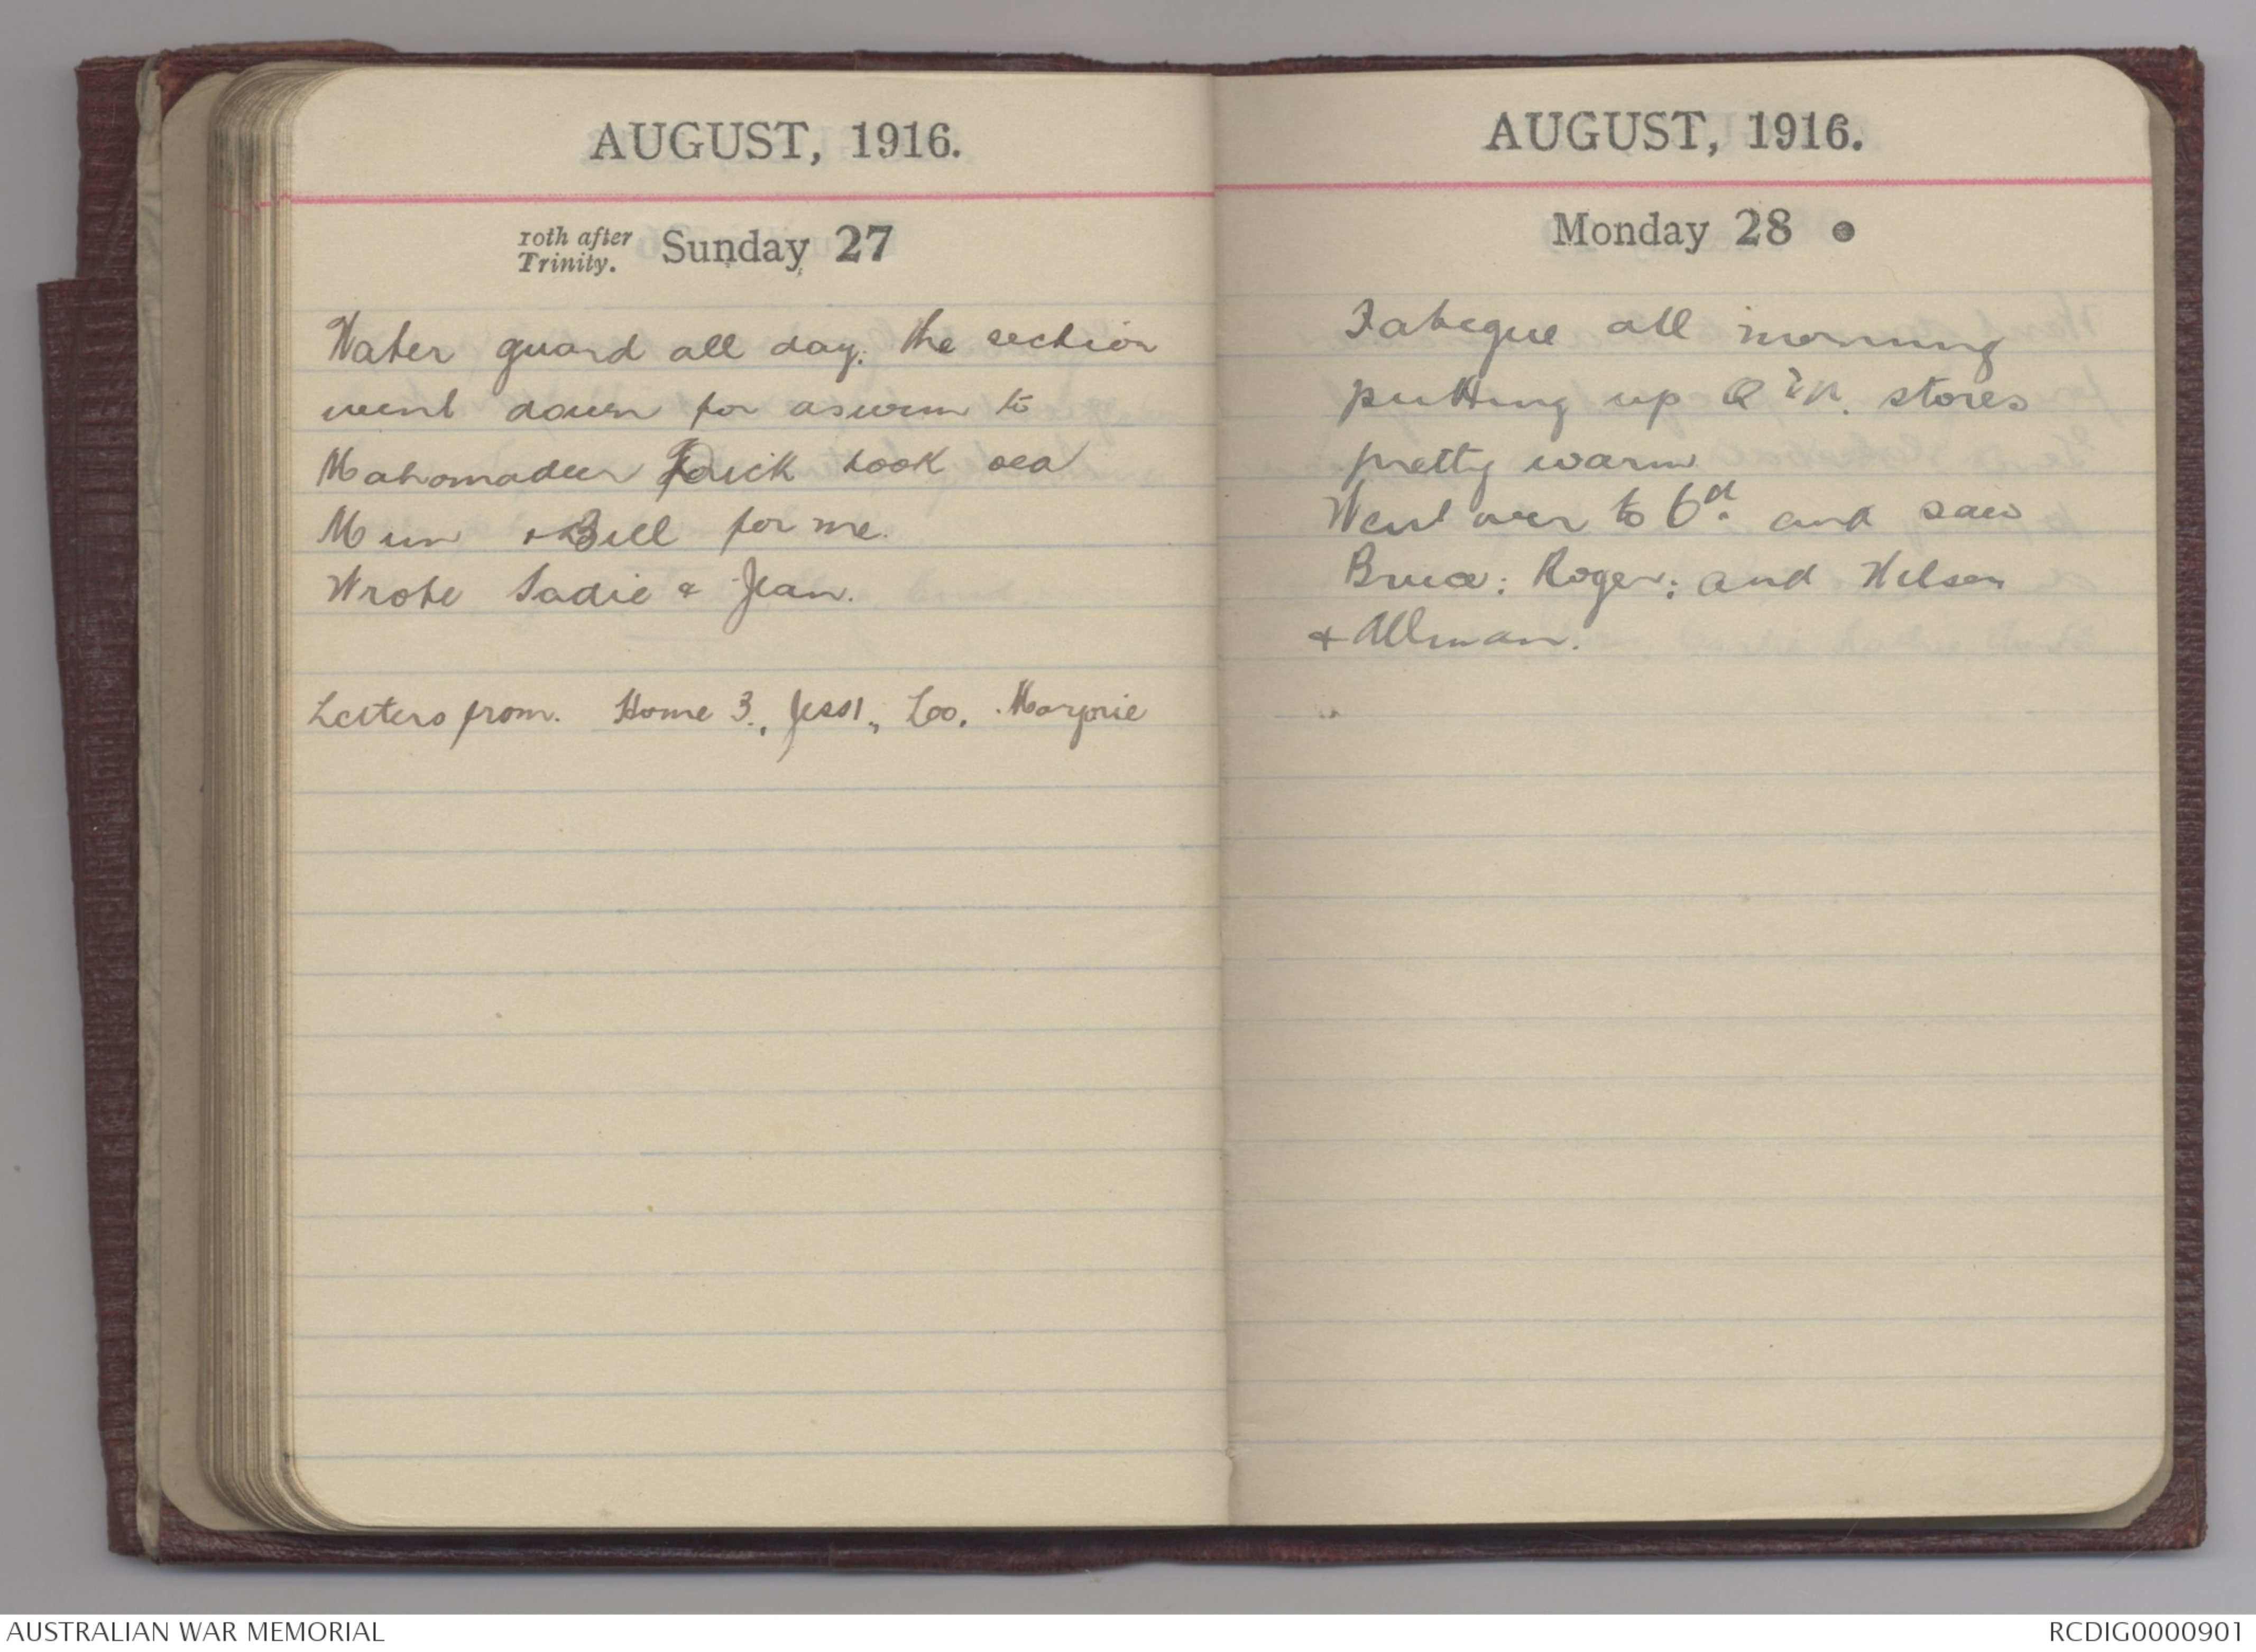 AUGUST, 1916.
10th after Trinity. Sunday 27
Water guard all day. The section
went down for a swim to
Mahomadeer Dick took sea
Mun + Bill for me.
Wrote Sadie & Jean.
Letters from. Home 3., Jess1., Loo. Marjorie
AUGUST, 1916.
Monday 28
Fatigue all morning
putting up stores
pretty warm
Went over to 6d. and saw
Bruce: Roger: and Wilson
+ Allman.
AUSTRALIAN WAR MEMORIAL
RCDIG0000901